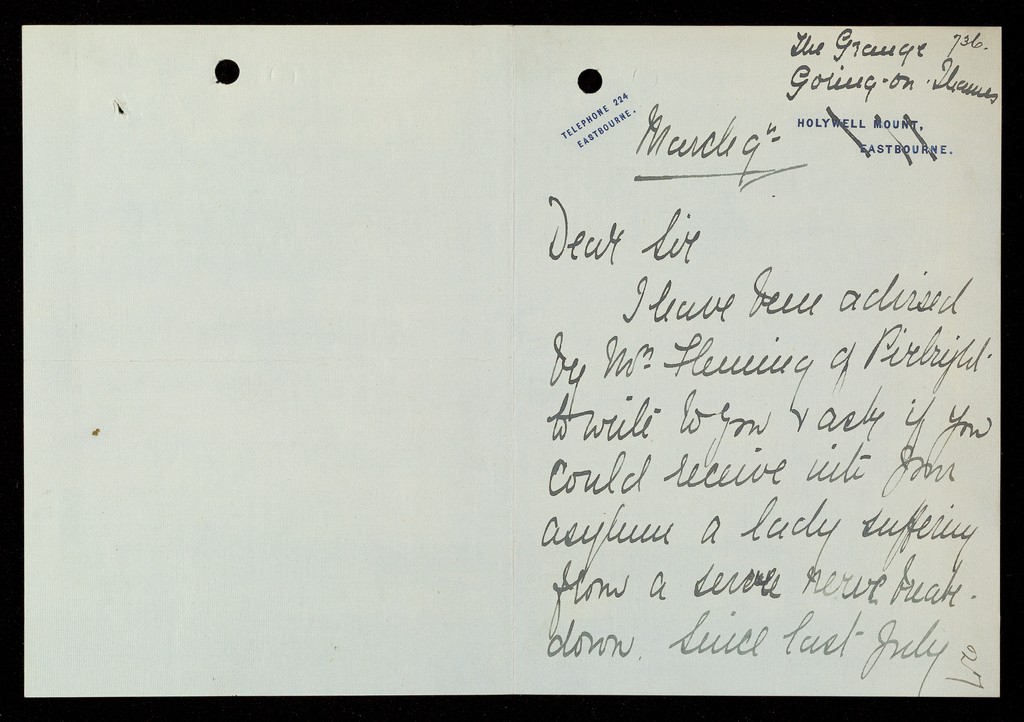 The Grange 736.
Goring-on-Thames
TELEPHONE 224
EASTBOURNE.
HOLYWELL MOUNT,
EASTBOURNE.
March 9th
Dear Sir
I have been advised
by Mrs Fleming of Pirbright
to write to you & ask if you
could receive into your
asylum a lady suffering
from a severe nerve break-
down. Since last July
27